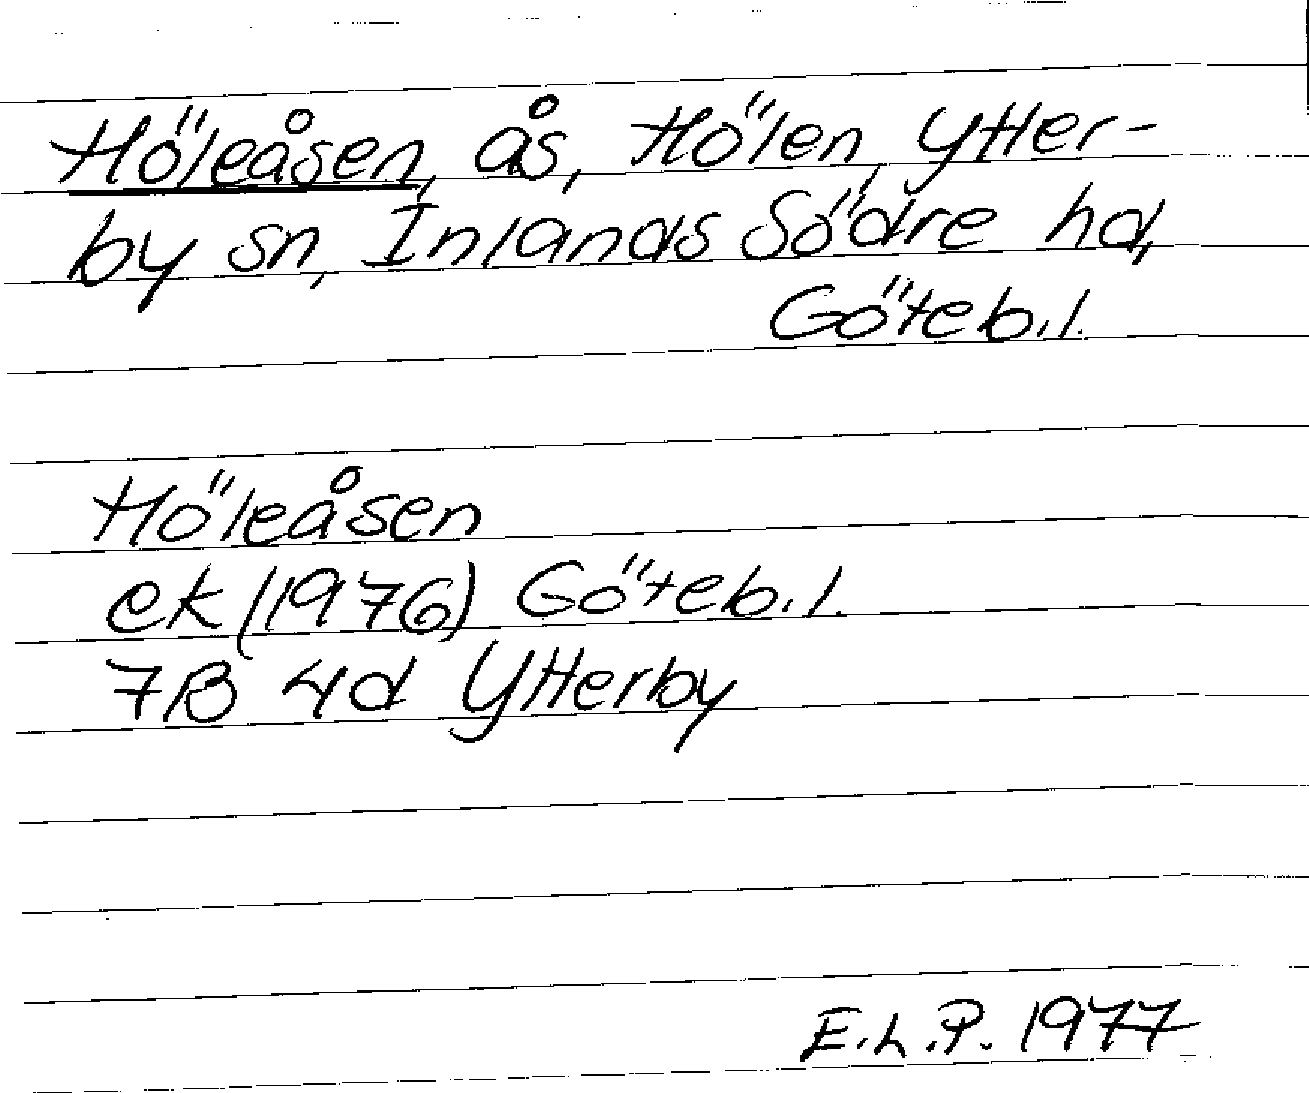 Höleåsen, ås, Hölen, Ytter-
by sn, Inlands Södre hd,
Göteb.l.
Höleåsen
ek (1976) Göteb.l.
7B 4d Ytterby
E.L.P. 1977